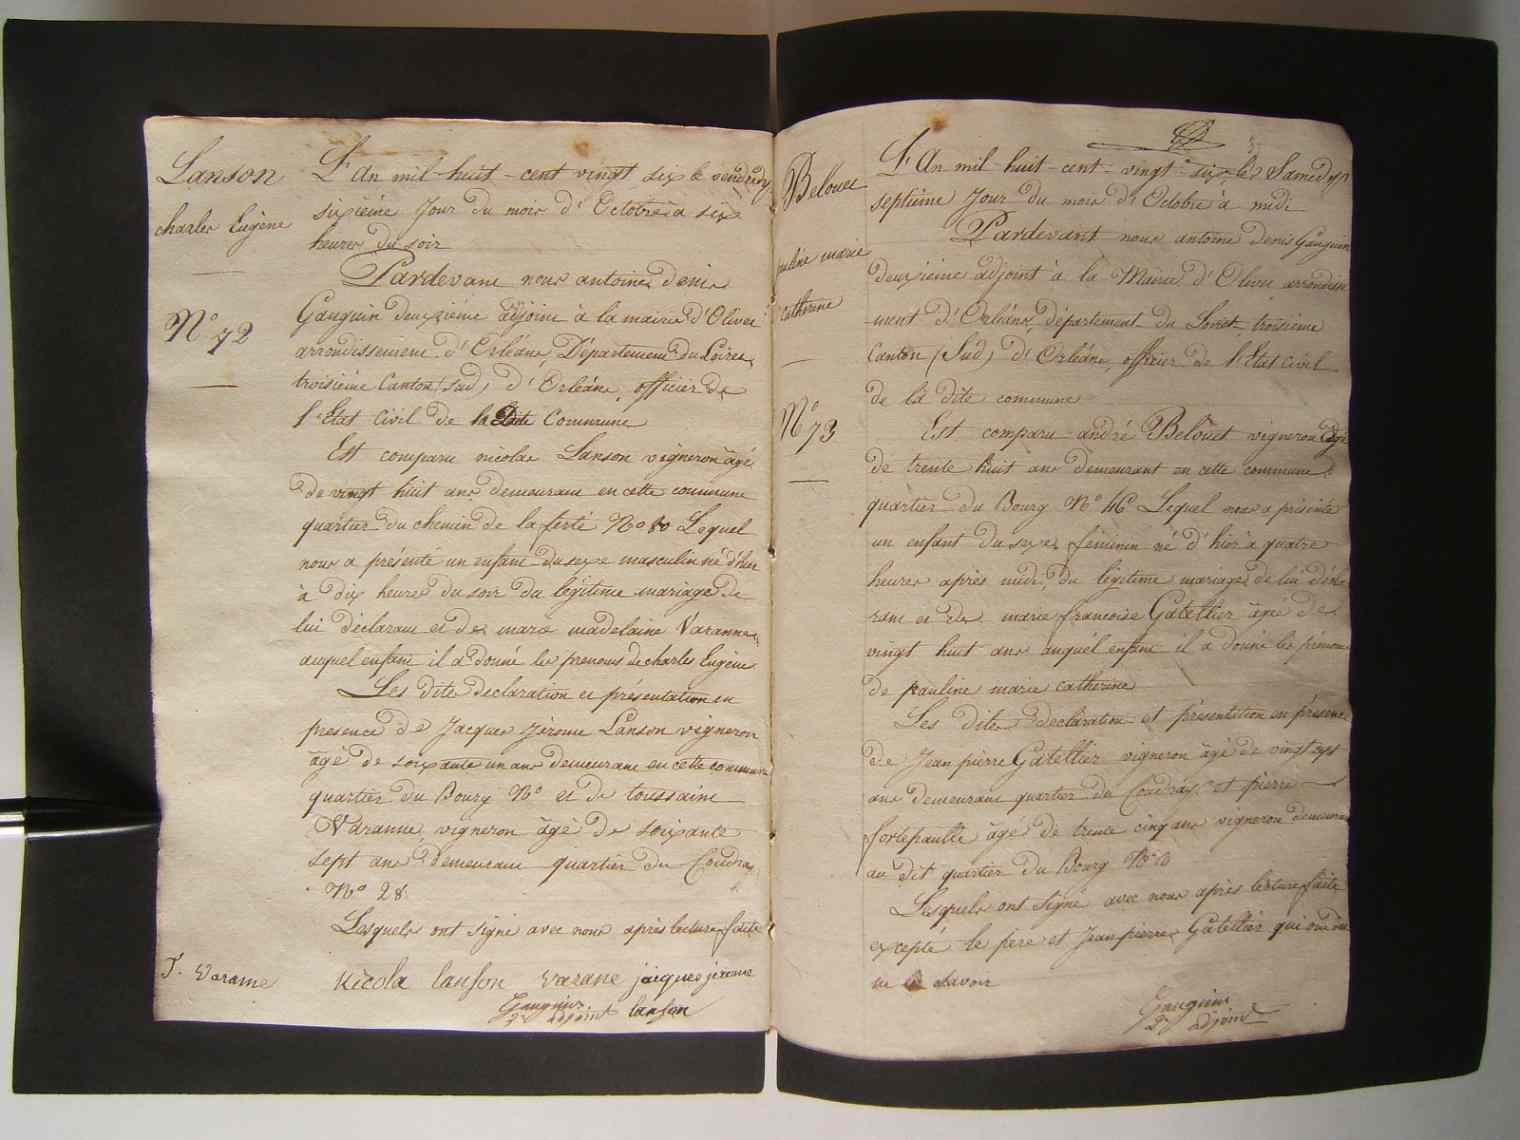 Lanson
charles Eugène
N° 72
L'An mil huit-cent vingt six le vendredy
sixieme Jour du mois d'Octobre à six
heures du soir
Pardevant nous antoine denis
Gauguin deuxième adjoint à la mairie d'Olivet
arrondissement d'Orléans, Département du Loiret,
troisieme Canton (sud) d'Orléans, officier de
l'Etat Civil de la Dite Commune
Est comparu nicolas Lanson vigneron âgé
de vingt huit ans demeurant en cette commune
quartier du chemin de la ferté N° 80 Lequel
nous a présenté un enfant du sexe masculin né d'hier
à dix heures du soir du légitime mariage de
lui déclarant et de marie madelaine Varanne
auquel enfant il a donné les prenoms de charles Eugène
Les dites declaration et présentation en
presence de Jacques Jérome Lanson vigneron
âgé de soixante un ans demeurant en cette commune
quartier du Bourg N° et de toussaint
Varanne vigneron âgé de soixante
sept ans demeurant quartier du Coudray
N° 28.
Lesquels ont signé avec nous après lecture faite
T. Varanne Nicola lanson varane jaiques jerome
Gauguin lanson
2e adjoint
Belouet
pauline marie
catherine
N° 73
L'An mil-huit-cent-vingt-six le Samedy
septième Jour du mois d'Octobre à midi
Pardevant nous antoine Denis Gauguin
deuxième adjoint à la Mairie d'Olivet arrondisse
-ment d'Orléans, département du Loiret troisieme
Canton (Sud) d'Orléans, officier de l'Etat civil
de la dite commune
Est comparu andré Beloüet vigneron âgé
de trente huit ans demeurant en cette commune
quartier du Bourg N° 46 Lequel nous a présenté
un enfant du sexe féminin né d'hier à quatre
heures après midi, du légitime mariage de lui décla
rant et de marie françoise Gatellier âgée de
vingt huit ans auquel enfant il a donné les prénoms
de pauline marie catherine
Les dites declaration et présentation en présence
de Jean pierre Gatellier vigneron âgé de vingt sept
ans demeurant quartier du Coudray et pierre
fortepaulle âgé de trente cinq ans vigneron demeurant
au dit quartier du Bourg N°
Lesquels ont signé avec nous après lecture faite
excepté le pere et Jean pierre Gatellier qui ont dit
ne savoir
Gauguin
2e adjoint